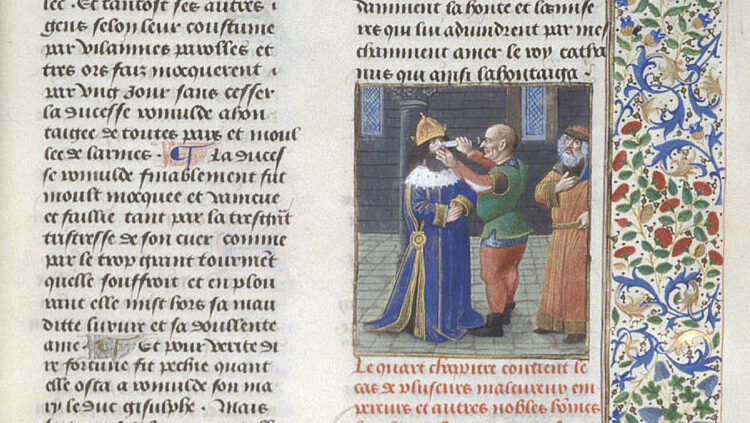 lec. Et tantost ses autres i
gens selon leur coustume
par vilannies parolles et
tres ors fais mocquerent i
par vng Jour sans cesser
la ducesse romulde ahon
taigee de toutes pars et moul
lee de larmes. La duces
se romulde finablement fut
moult mocquee et vaincue
et faillie tant par la tresgnt
tristresse de son cuer comme
par le trop grant tourmet
quelle souffroit et en plou
rant elle mist hors sa mau
ditte luxure et sa doullente
ame. Et pour verite di
re fortune fit pechie quant
elle osta a romulde son ma
ry le duc gisulphe. Mais
damment la honte et les mise
res qui lui aduindrent par mes
chamment amer le roy catha
nus qui ainsi lahontaiga.
Le quart chappitre contient le
cas de pluseurs maleureux em
pereurs et autres nobles hommes